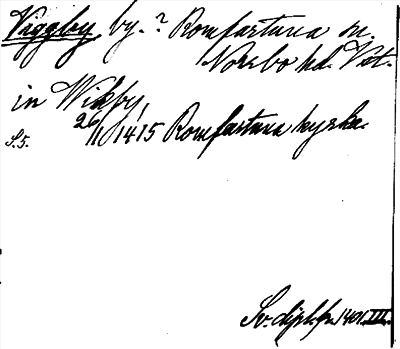 Viggby by.? Romfartuna sn.
Norrbo hd. Vstm.
in Wikby,
26/11 1415 Romfartuna kyrka.
S. 5.
Sv. dipl. fr. 1401. III.